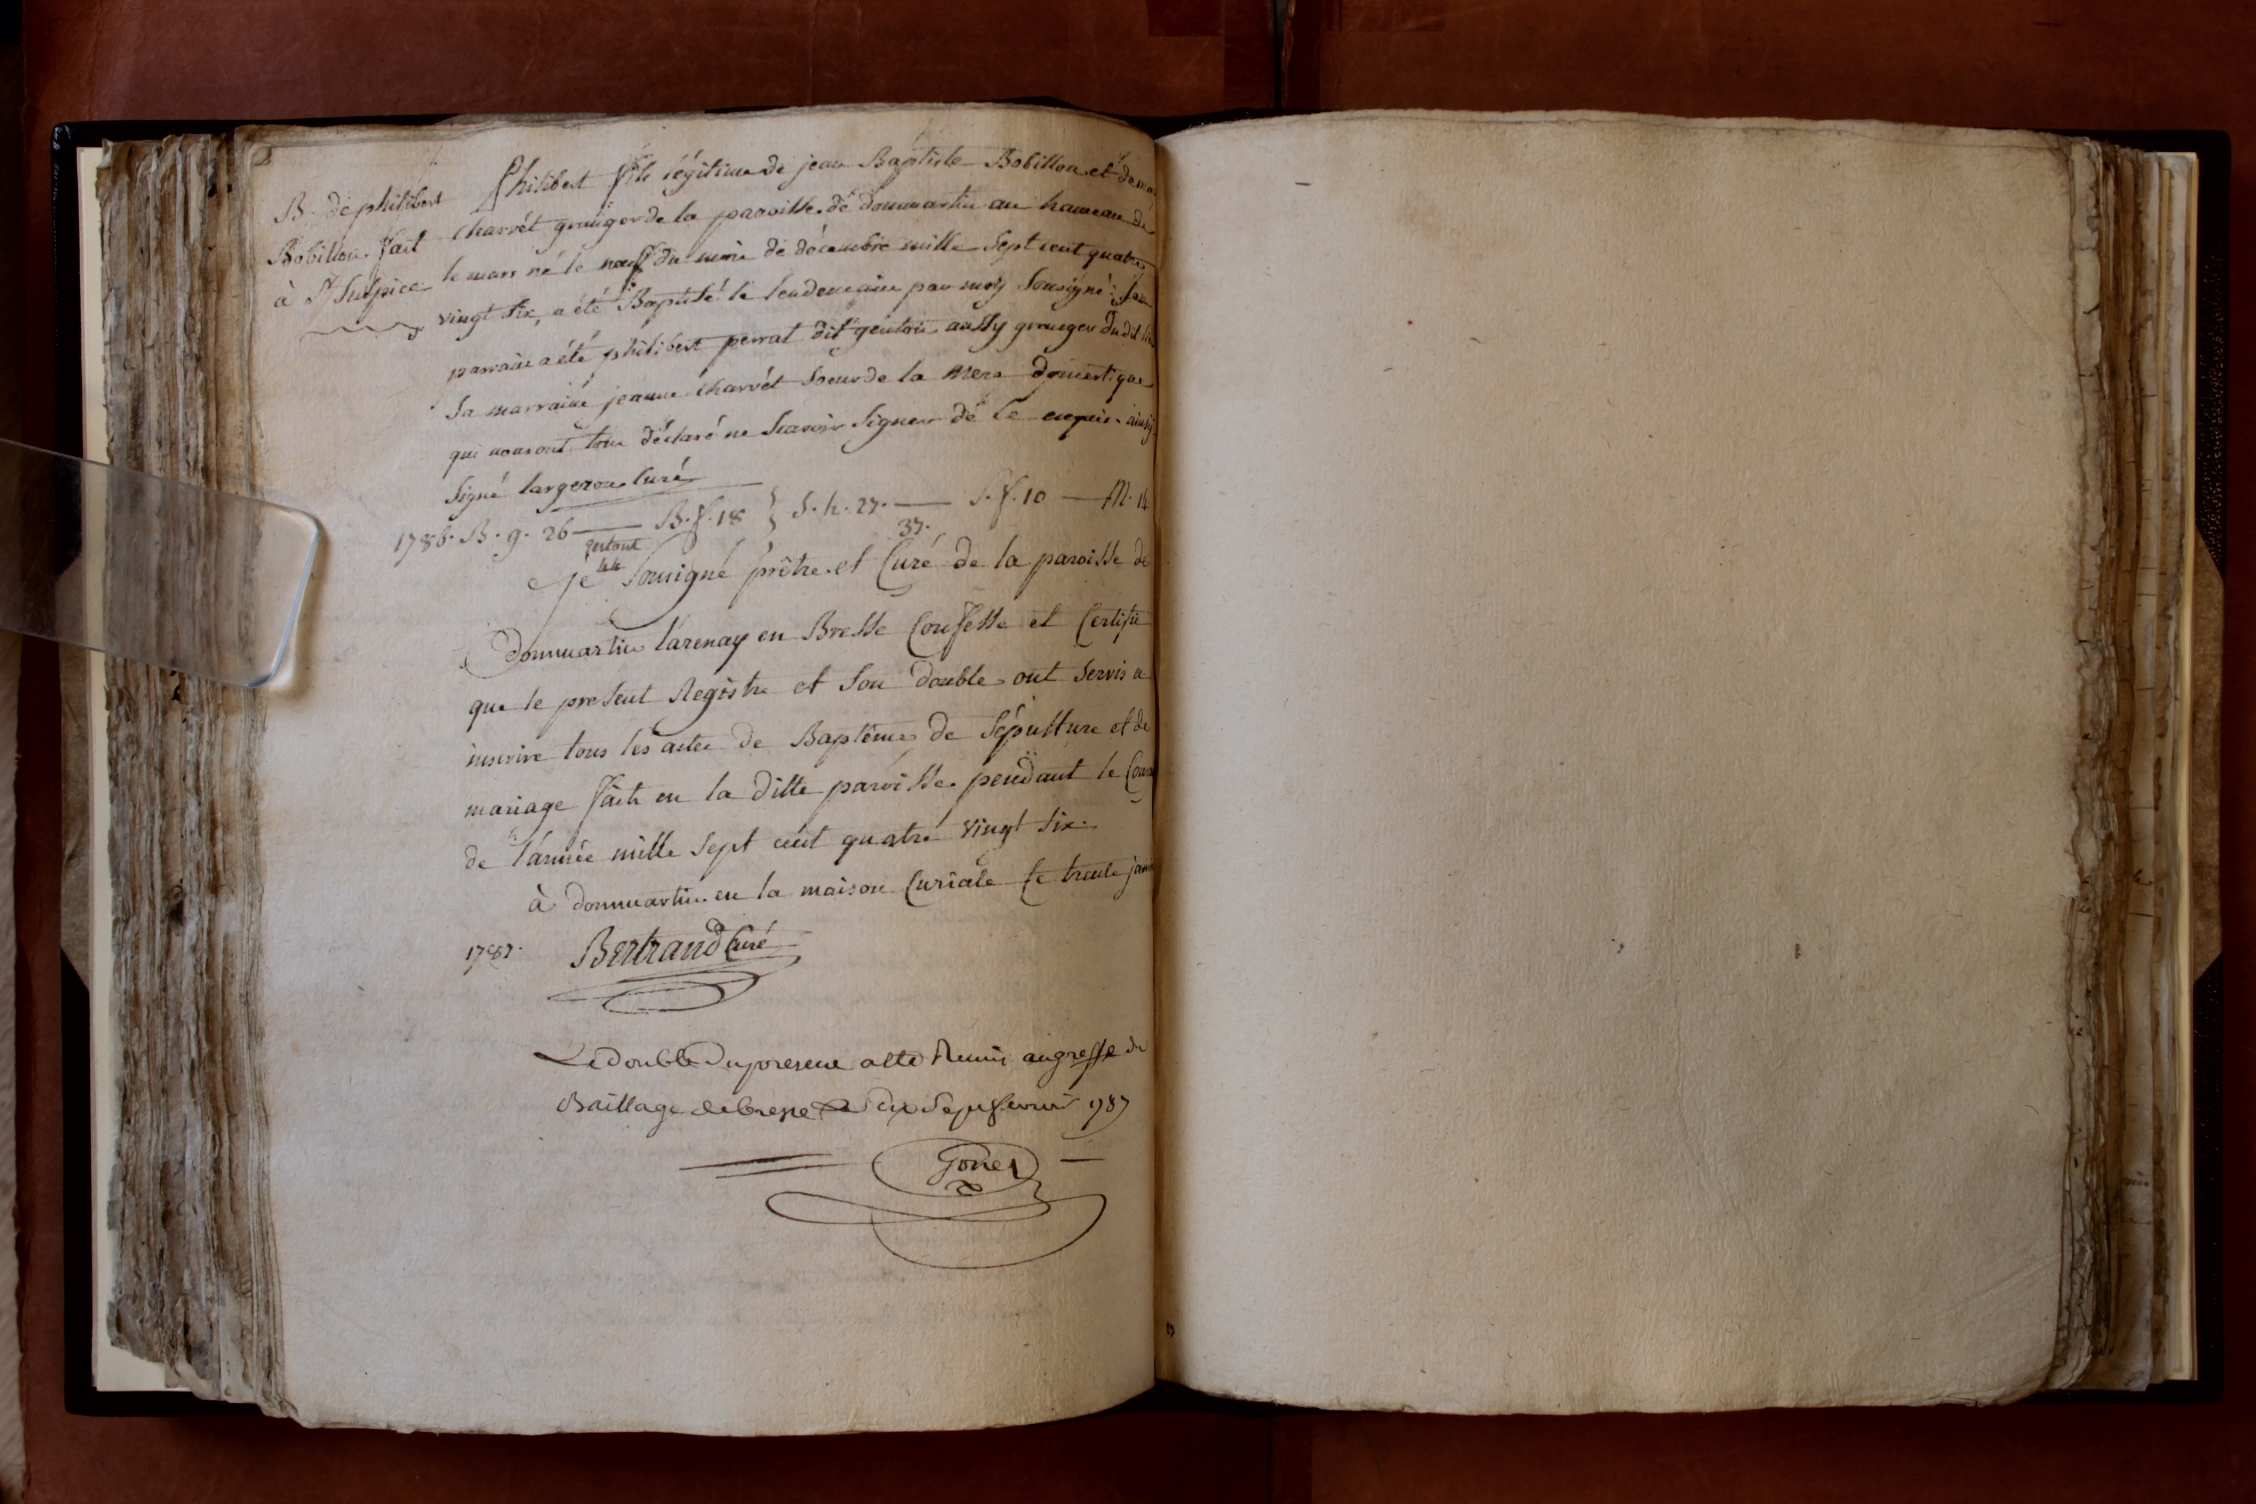 B. de philibert
Bobillon fait
à St Sulpice
philibert fils légitime de jean Baptiste Bobillon et de
Charvét granger de la paroisse de dommartin au hameau de
le mars né le neuf du mois de décembre mille Sept cent quatre
vingt Six, a été Baptisé le lendemain par moy Sousigné: Son
parrain a été philibert perrat dit aussy granger du dit lieu
Sa marraine jeanne Charvét Soeur de la mere domestique
qui nous ont tous déclaré ne Scavoir Signer de ce enquis. ainsy
Signé largeron Curé
1786. B. g. 26 — B. f. 18 } S. h. 27. — S. f. 10 — M. 14
en tout 44
37.
Je Sousigné prêtre et Curé de la paroisse de
Dommartin Larenay en Bresse Confesse et Certifie
que le present Registre et Son double ont Servis a
inscrire tous les actes de Baptêmes de Sépulture et de
mariage faits en la ditte paroisse pendant le Cours
de l'année mille Sept cent quatre vingt Six.
à dommartin en la maison Curiale le trente janv
1787. Bertrand Curé
Le double du present a été Remis au greffe du
Baillage de bresse le dix Sept fevrier 1787